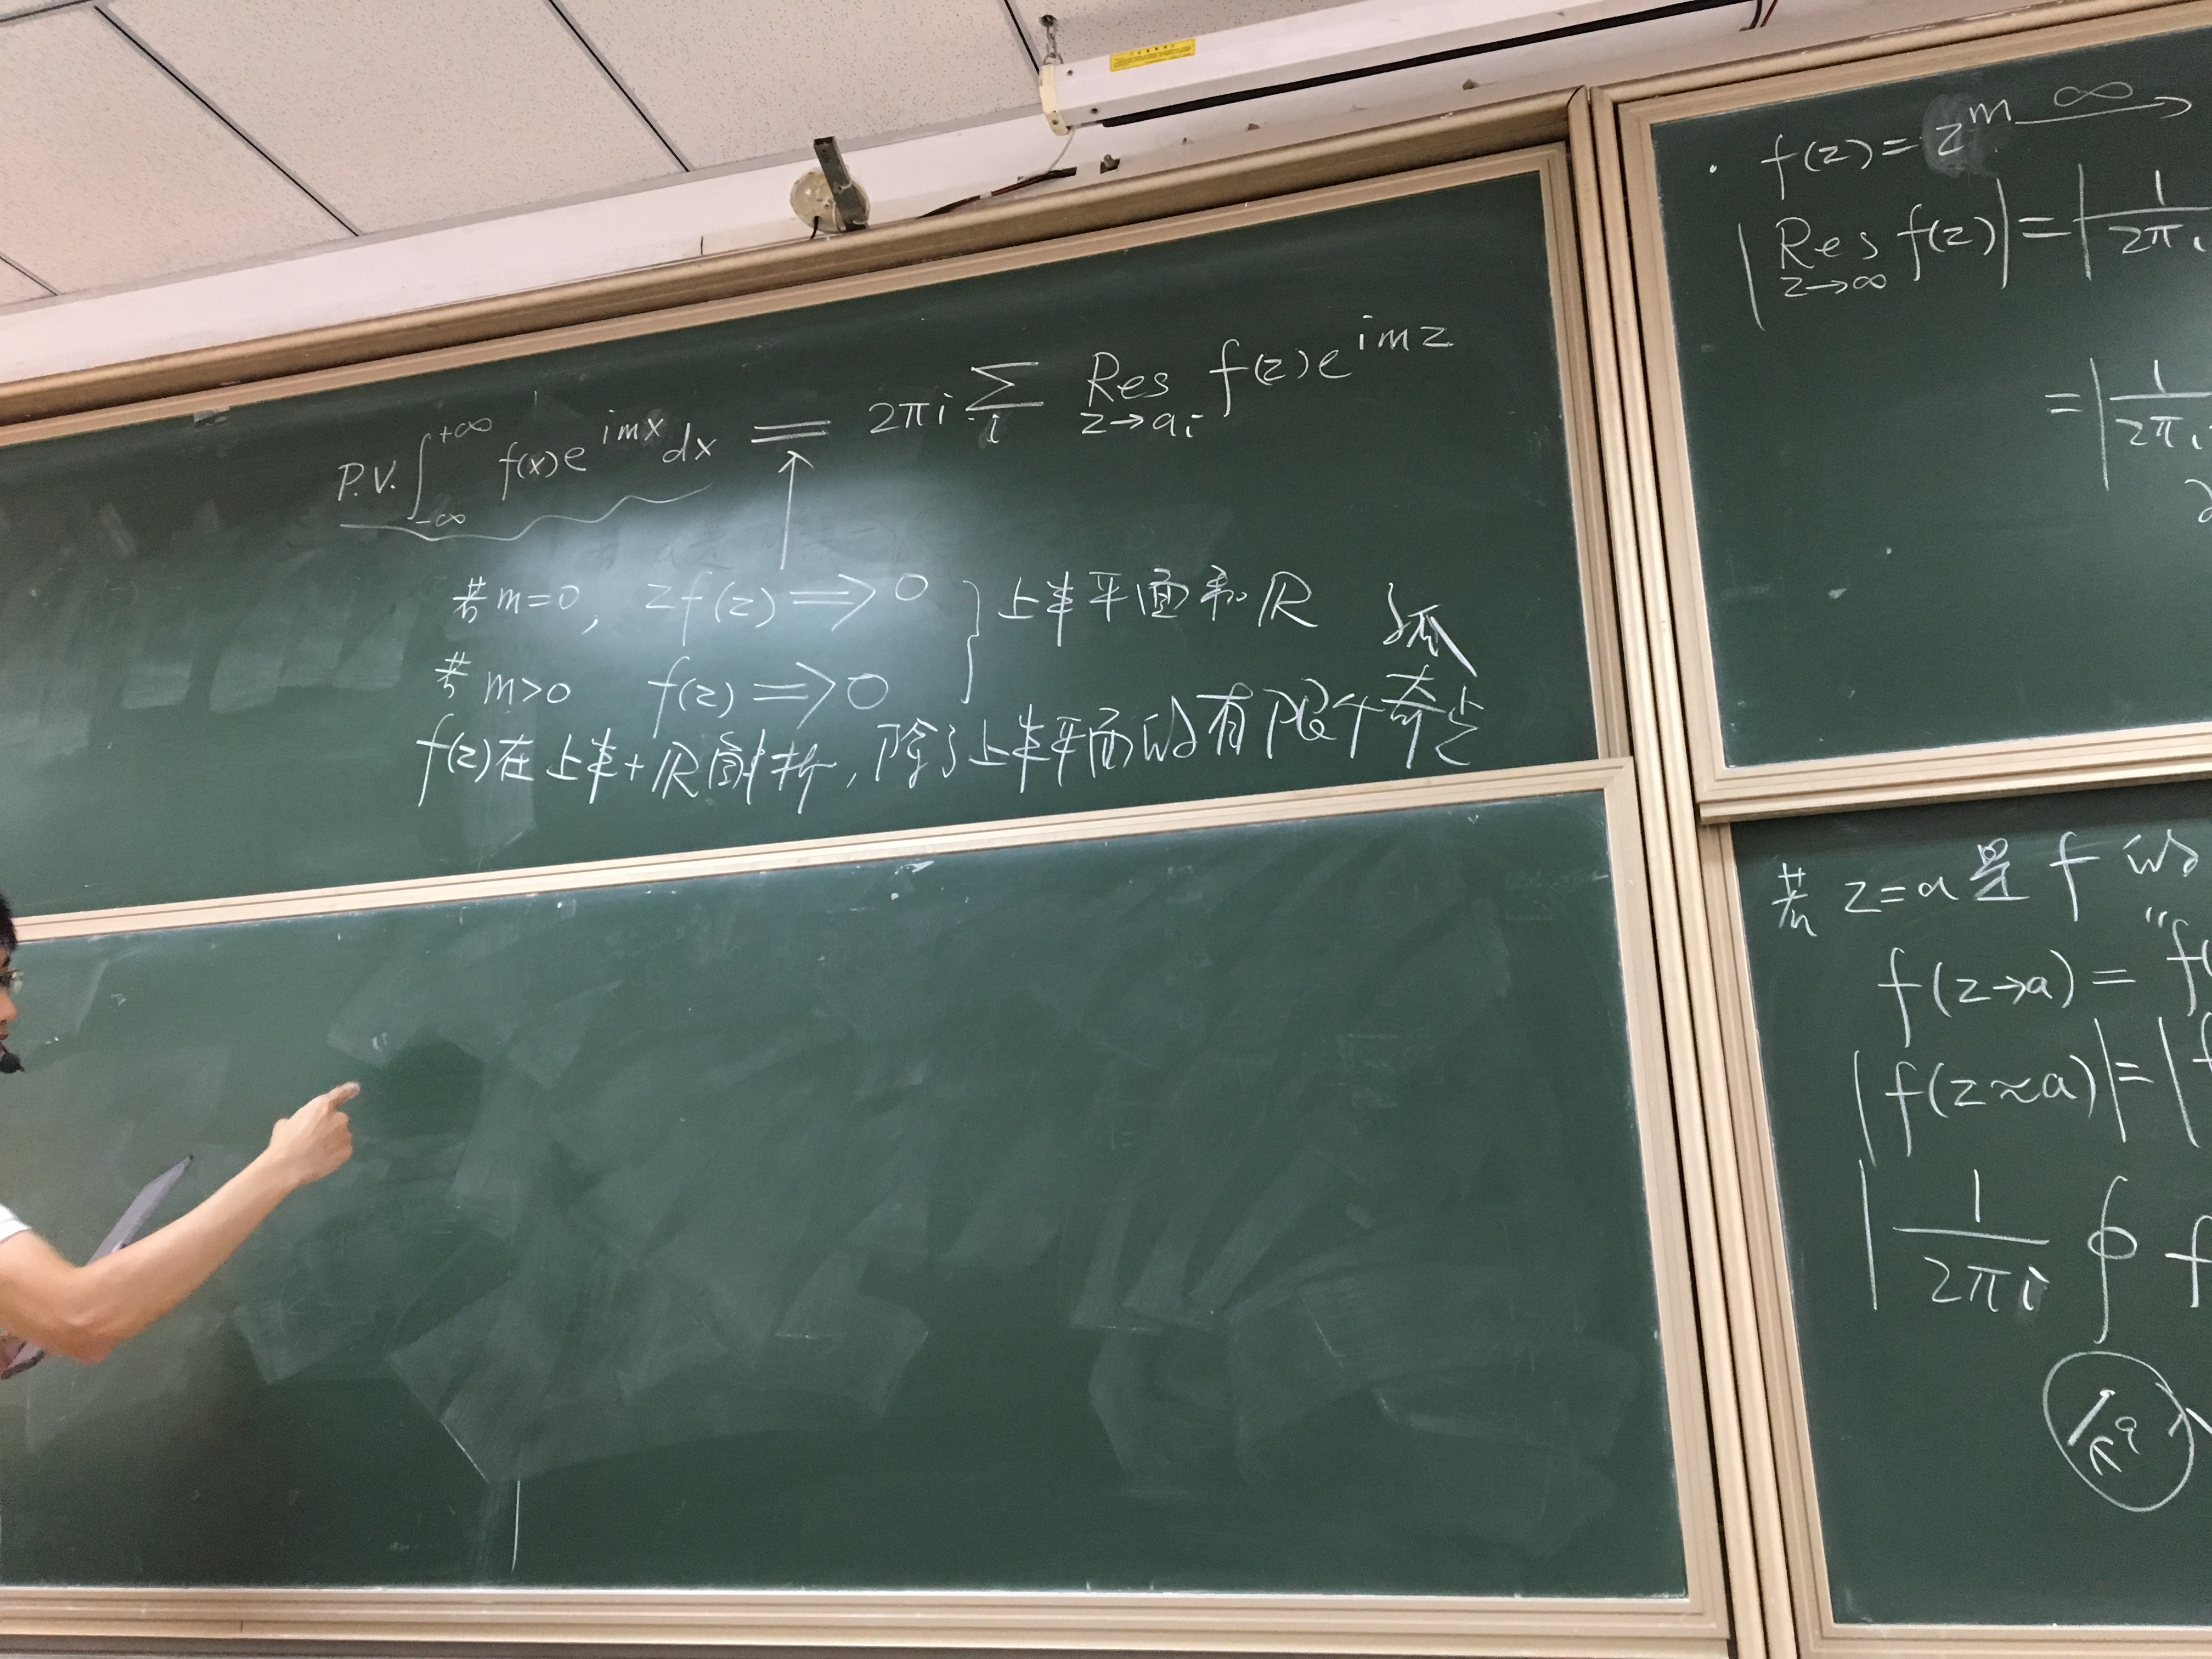 P.V. ∫_{-∞}^{+∞} f(x)e^{imx}dx = 2πi ∑_i Res_{z→a_i} f(z)e^{imz}
若m=0, zf(z) ⇒ 0 } 上半平面和ℝ
若m>0 f(z) ⇒ 0
孤
f(z)在上半+ℝ解析,除了上半平面的有限个奇点
· f(z)=z^m ∞→
|Res_{z→∞} f(z)|=|1/2πi
=|1/2πi
若z=a是f的
f(z→a)="f(
|f(z≈a)|=|f
|1/2πi ∮ f